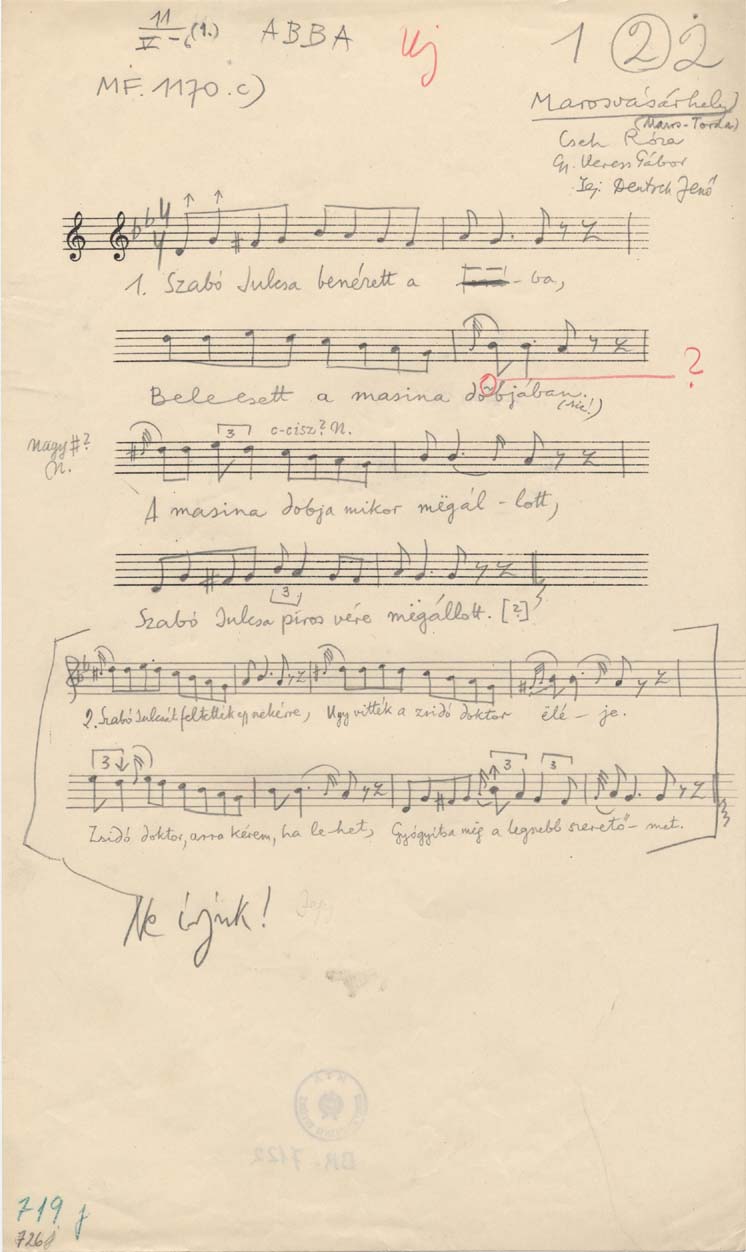 11
V – 6 (1.) ABBA Uj 1 2 2
MF. 1170. c)
Marosvásárhely
(Maros-Torda)
Cseh Róza
Gy. Veress Gábor
Lej. Deutsch Jenő
1. Szabó Julcsa benérett a -ba,
Beleesett a masina dobjában. ?
(sic!)
nagy #?
N.
3 c-cisz? N.
A masina dobja mikor mëgál-lott,
3
Szabó Julcsa piros vére mëgállott. [?]
2. Szabó Julcsát feltették egy székérre, Ugy vitték a zsidó doktor élé-je.
3 3 3
Zsidó doktor, arra kérem, ha le-het, Gyógyitsa mëg a legszebb szerető-met.
Ne írjuk!
BR. 7122
719 j
726 j